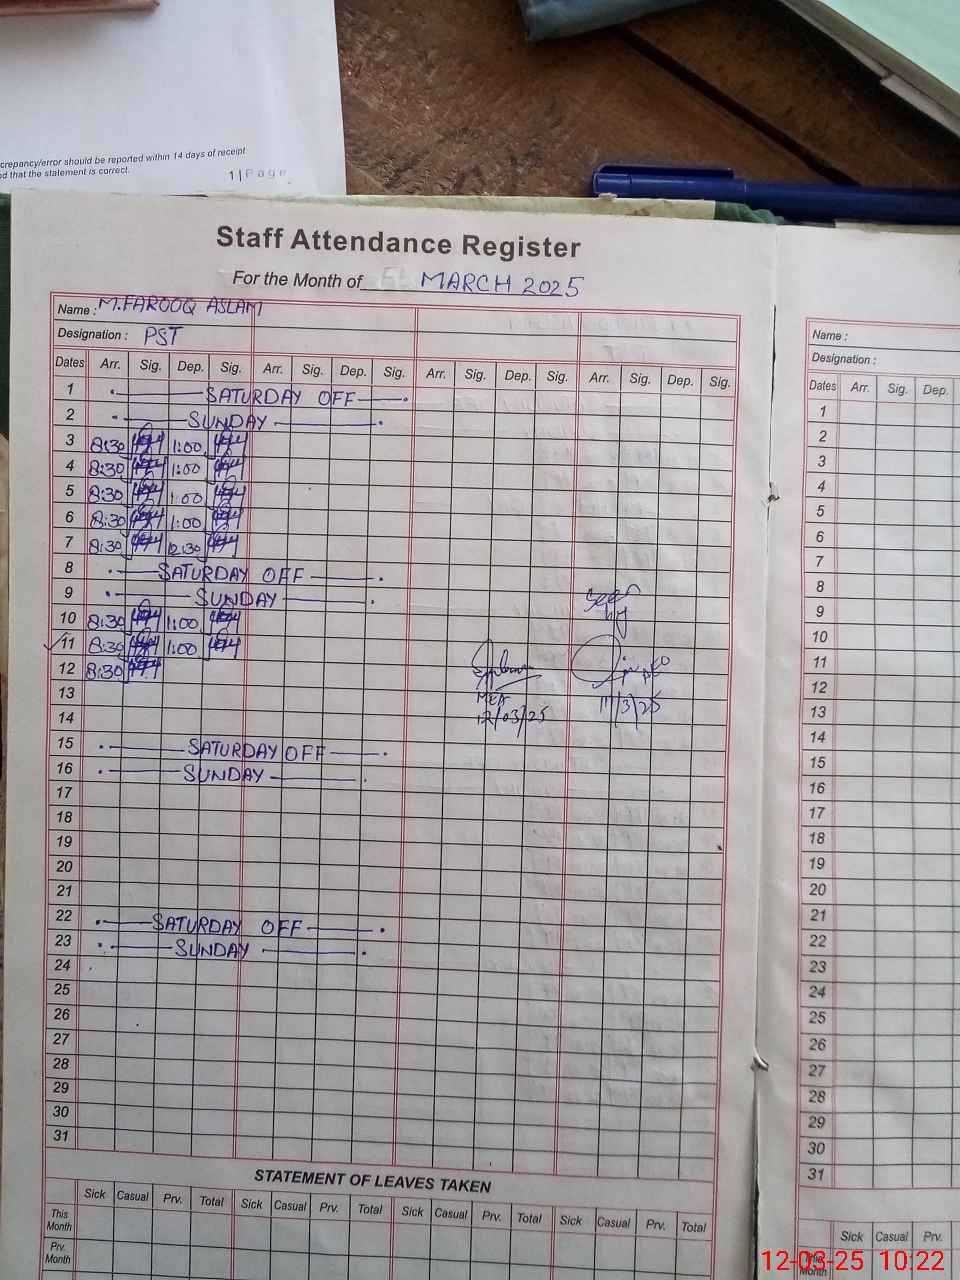 crepancy/error should be reported within 14 days of receipt
d that the statement is correct.
1 | Page
Staff Attendance Register
For the Month of MARCH 2025
Name : M.FAROOQ ASLAM
Designation : PST
Dates Arr. Sig. Dep. Sig. Arr. Sig. Dep. Sig. Arr. Sig. Dep. Sig. Arr. Sig. Dep. Sig.
1 SATURDAY OFF
2 SUNDAY
3 8:30 1:00
4 8:30 1:00
5 8:30 1:00
6 8:30 1:00
7 8:30 12:30
8 SATURDAY OFF
9 SUNDAY
10 8:30 1:00
11 8:30 1:00
12 8:30
13
14
15 SATURDAY OFF
16 SUNDAY
17
18
19
20
21
22 SATURDAY OFF
23 SUNDAY
24
25
26
27
28
29
30
31
seen
by
MEA
12/03/25
11/3/25
STATEMENT OF LEAVES TAKEN
Sick Casual Prv. Total Sick Casual Prv. Total Sick Casual Prv. Total Sick Casual Prv. Total
This Month
Prv. Month
Name :
Designation :
Dates Arr. Sig. Dep.
1
2
3
4
5
6
7
8
9
10
11
12
13
14
15
16
17
18
19
20
21
22
23
24
25
26
27
28
29
30
31
Sick Casual Prv.
This Month
12-03-25 10:22